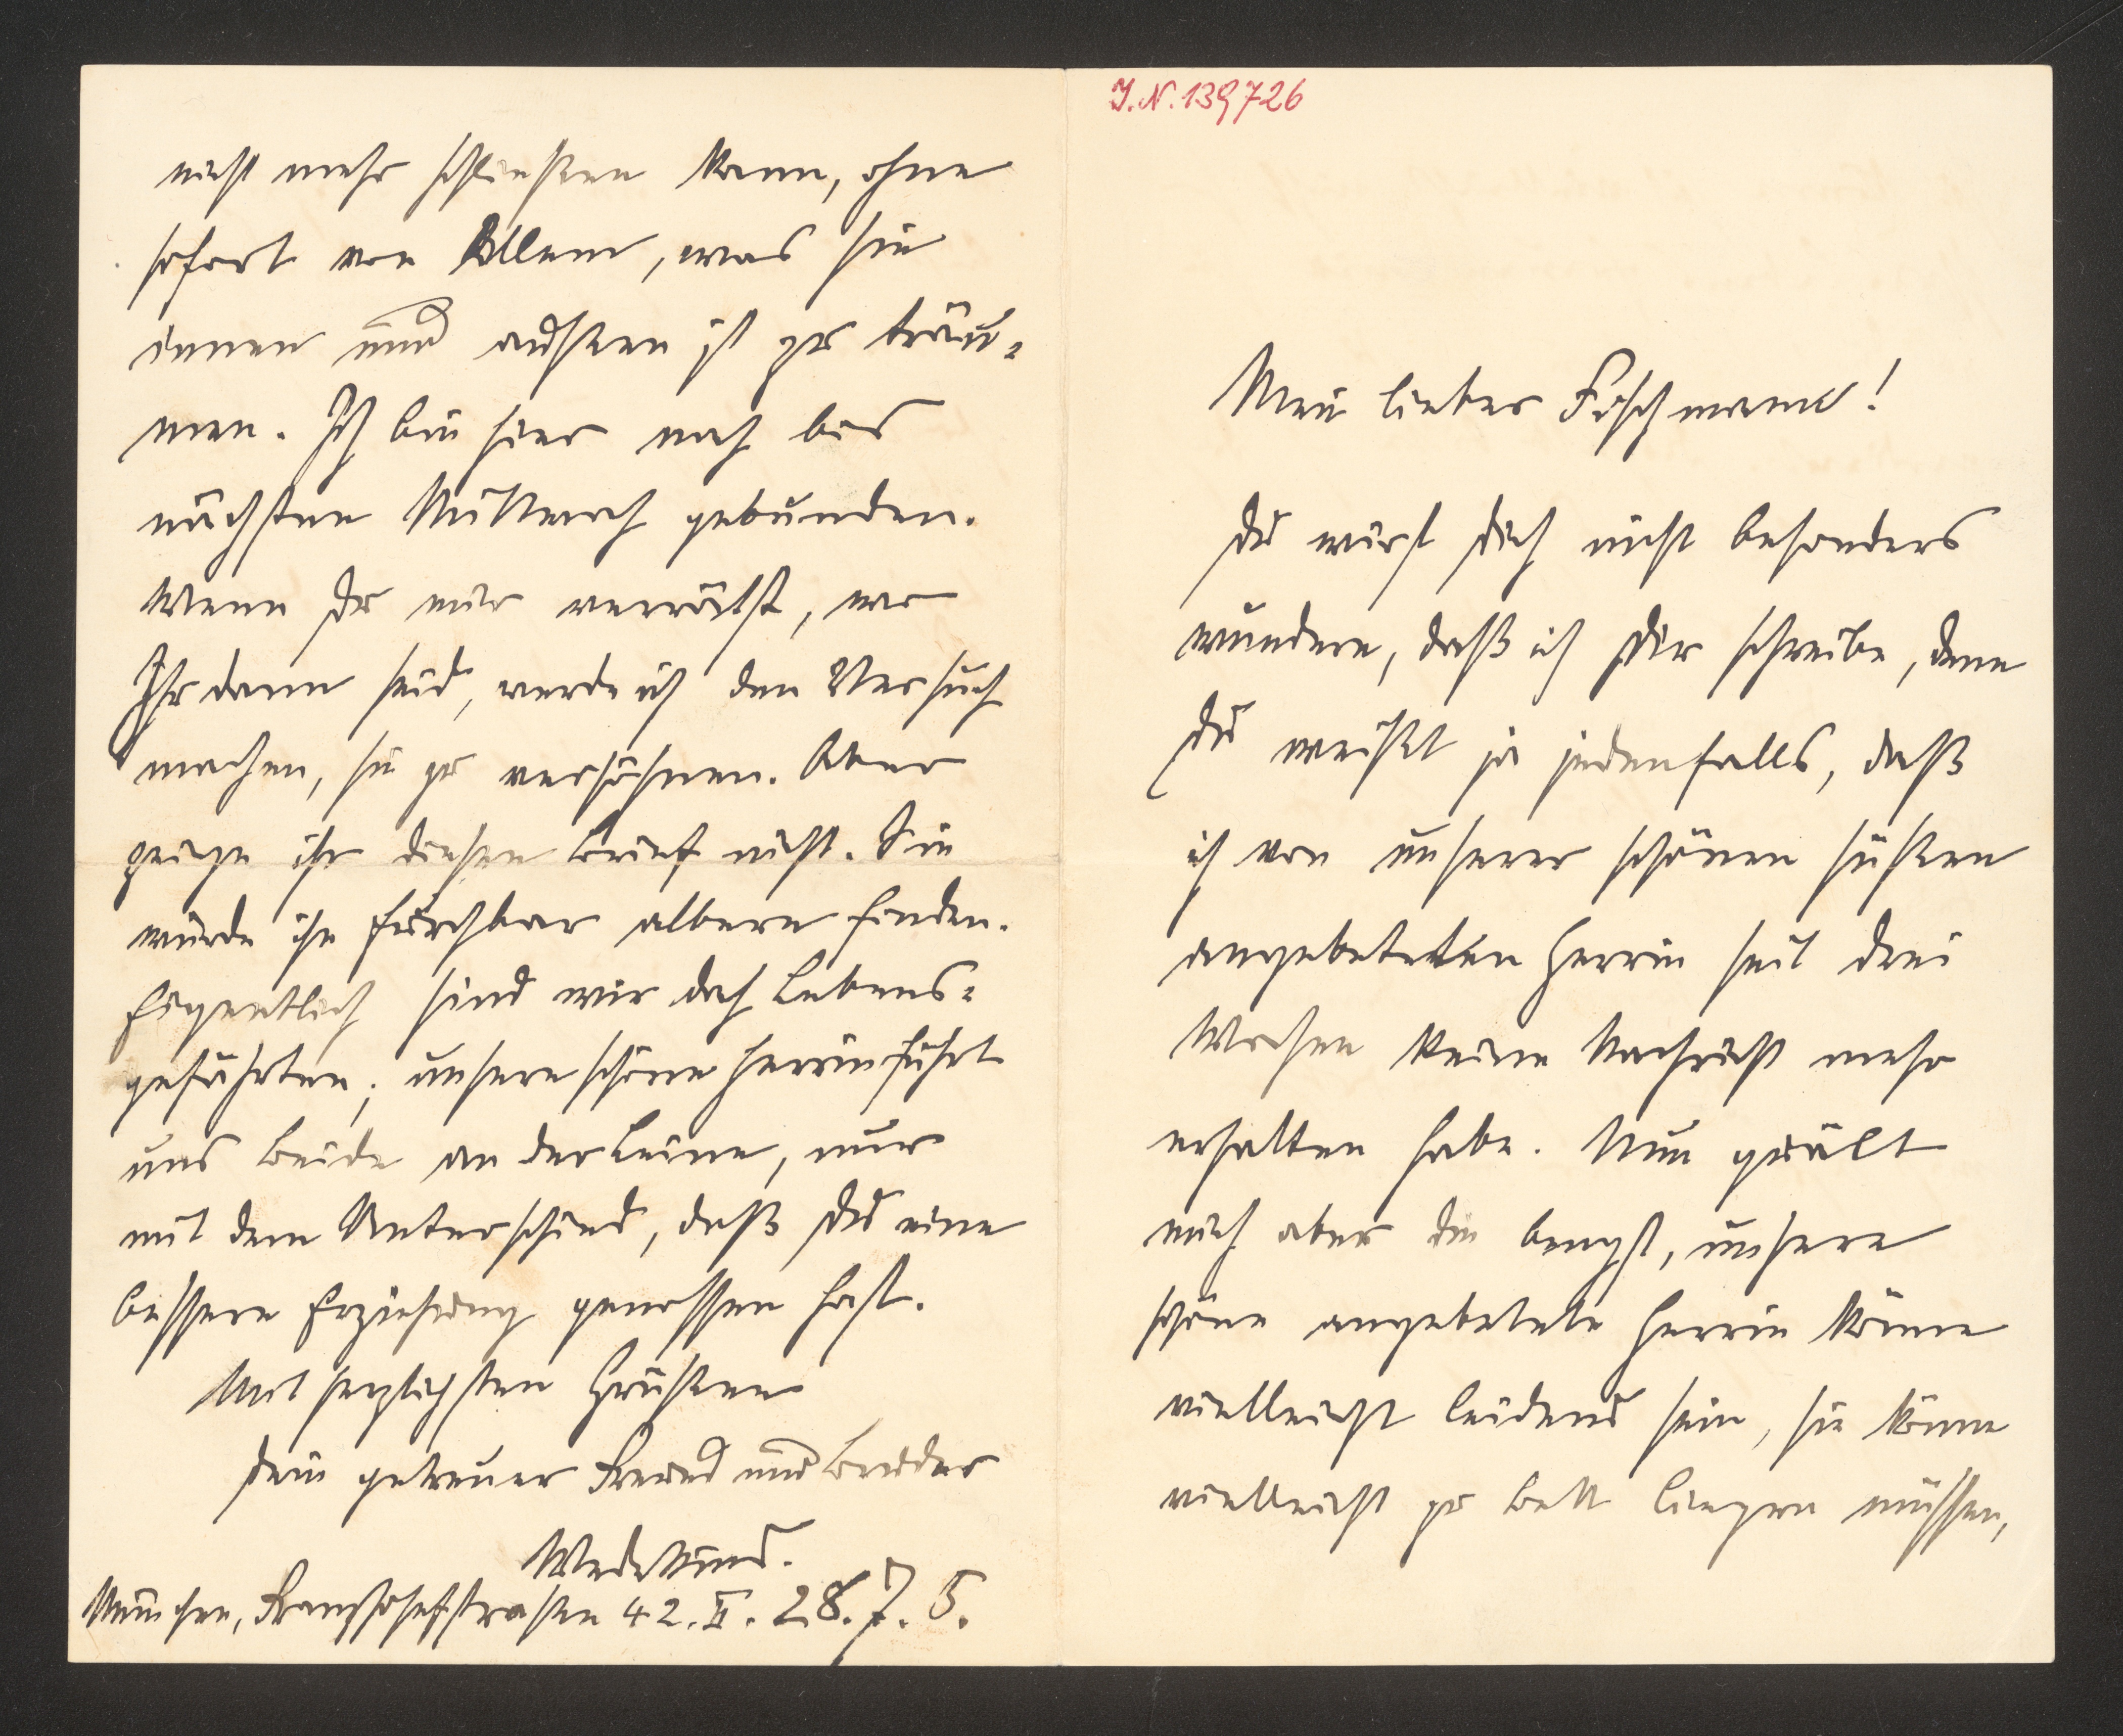 J.N. 139726
Mein lieber Fischmann!
Du wirst Dich nicht besonders
wundern, daß ich Dir schreibe, denn
Du weisst ja jedenfalls, daß
ich von unserer schönen süssen
angebeteten Herrin seit drei
Wochen keine Nachricht mehr
erhalten habe. Nun quält
mich aber die Angst, unsere
schöne angebetete Herrin könne
vielleicht leidend sein, sie könne
vielleicht zu Bett liegen müssen,
nicht mehr schliessen kann, ohne
sofort von Allem, was sie
innen und aussen ist zu träu-
men. Ich bin hier noch bis
nächsten Mittwoch gebunden.
Wenn Du mir verrätst, wo
Ihr dann seid, werde ich den Versuch
machen, sie zu versöhnen. Aber
zeige ihr diesen Brief nicht. Sie
würde ihn furchtbar albern finden.
Eigentlich sind wir doch Lebens-
gefährten; unsere schöne Herrin führt
uns beide an der Leine, nur
mit dem Unterschied, daß Du eine
bessere Erziehung genossen hast.
Mit herzlichsten Grüssen
Dein getreuer Freund und Bruder
Wedekind.
München, Franzjosefstrasse 42.II. 28.7.5.